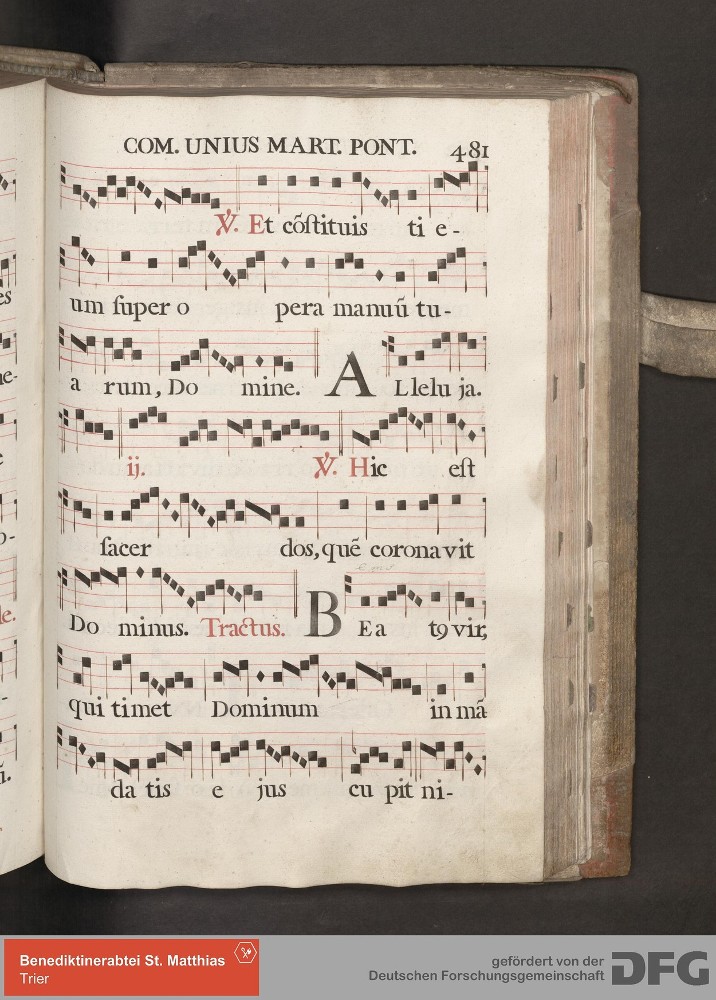 COM. UNIUS MART. PONT. 481
℣. Et cõſtituis ti e-
um ſuper o pera manuũ tu-
a rum, Do mine. A Llelu ja.
ij. ℣. Hic eſt
ſacer dos, quẽ coronavit
Do minus. Tractus. B Ea tꝯ vir,
qui timet Dominum in mã
da tis e jus cu pit ni-
es
ne-
o-
le.
Benediktinerabtei St. Matthias
Trier
gefördert von der
Deutschen Forschungsgemeinschaft DFG